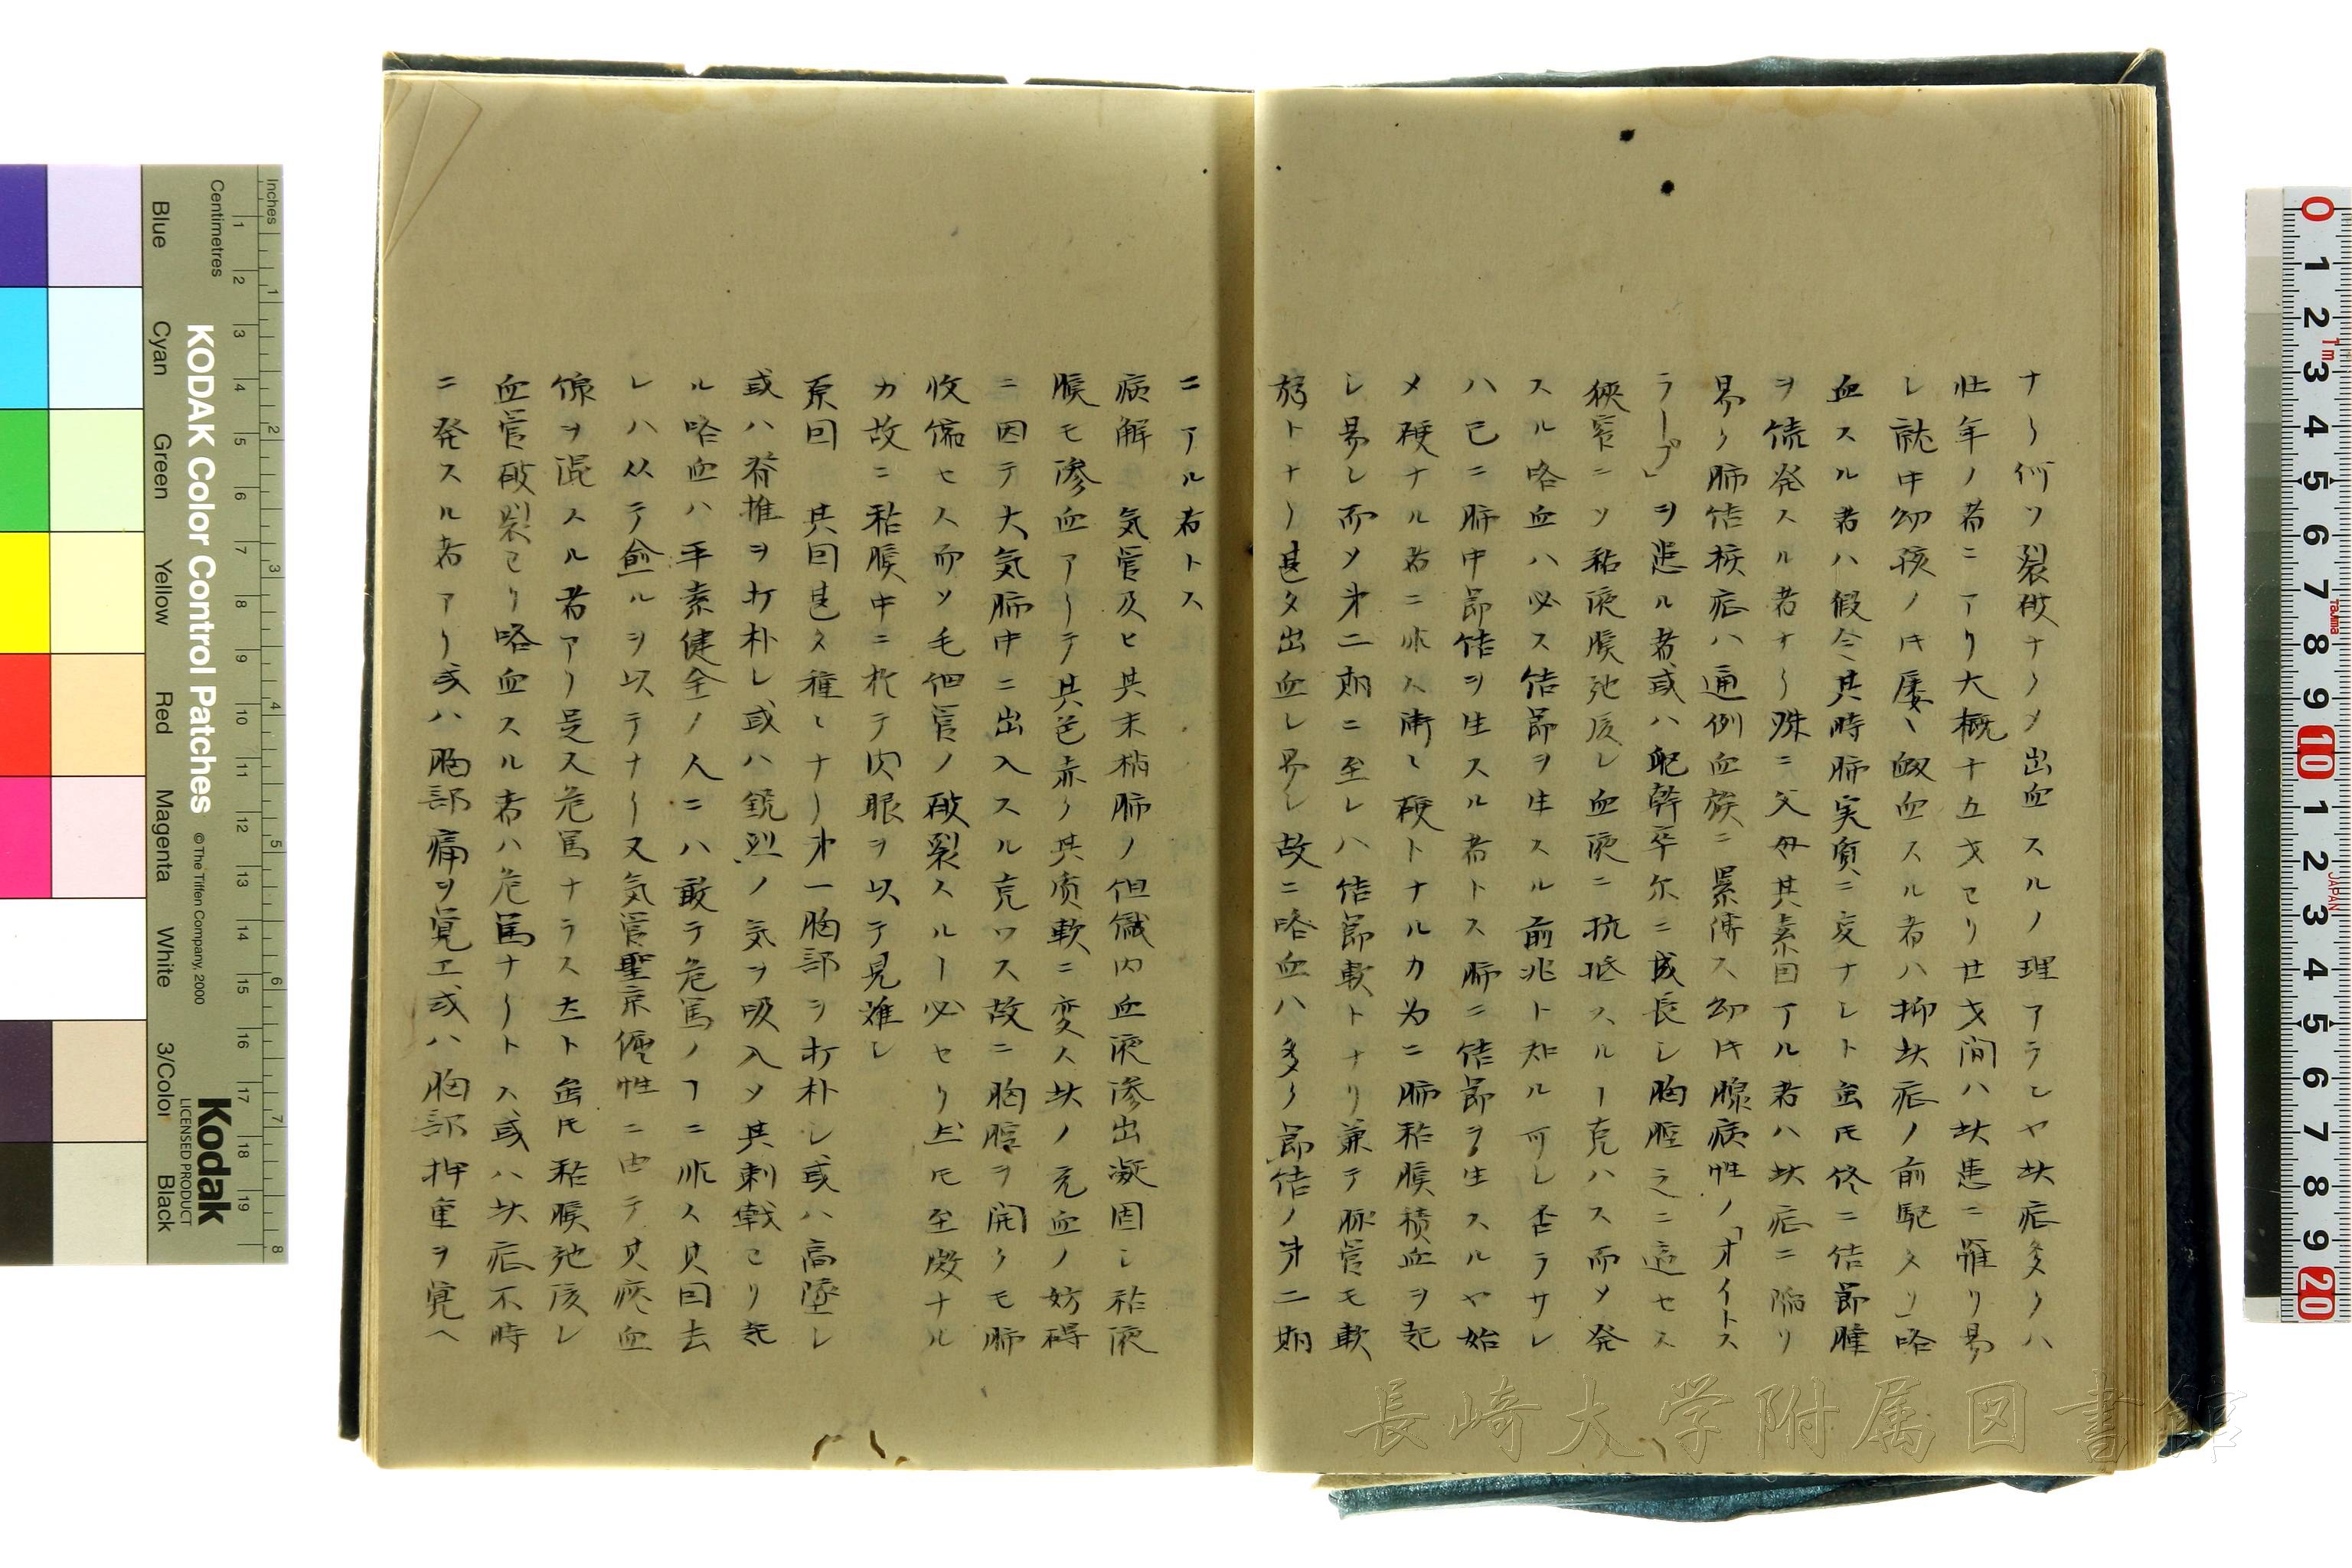 ナシ何ソ裂破ナクメ出血スルノ理アランヤ此症多クハ
壮年ノ者ニアリ大概十五才ヨリ廿才間ハ此患ニ罹リ易
シ就中幼孩ノ時屡〻衂血スル者ハ抑此症ノ前駆タリ咯
血スル者ハ假令其時肺実質ニ変ナシト雖モ終ニ結節腫
ヲ続発スル者ナリ殊ニ父母其素因アル者ハ此症ニ陥リ
易ク肺結核症ハ通例血族ニ累傳ス幼時腺病性ノ「オイトス
ラーグ」ヲ患ル者或ハ躯幹卒尓ニ成長シ胸腔之ニ適セス
狭窄ニソ粘液膜弛緩シ血液ニ抗抵スルヿ克ハス而メ発
スル咯血ハ必ス結節ヲ生スル前兆ト知ル可シ否ラサレ
ハ已ニ肺中節結ヲ生スル者トス肺ニ結節ヲ生スルヤ始
メ硬ナル者ニ非ス漸〻硬トナルカ為ニ肺粘膜積血ヲ起
シ易シ而メ第二期ニ至レハ結節軟トナリ兼テ脈管モ軟
弱トナリ甚タ出血シ易シ故ニ咯血ハ多ク節結ノ第二期
ニアル者トス
病解 気管及ヒ其末梢肺ノ組織内血液滲出凝固シ粘液
膜モ滲血アリテ其色赤ク其质軟ニ変ス此ノ充血ノ妨碍
ニ因テ大気肺中ニ出入スル克ワス故ニ胸腔ヲ開クモ肺
收縮セス而ソ毛細管ノ破裂スルヿ必セリ然モ至微ナル
カ故ニ粘膜中ニ於テ肉眼ヲ以テ見難シ
原因 其因甚タ種〻ナリ第一胸部ヲ打朴シ或ハ高墜シ
或ハ脊推ヲ打朴シ或ハ鋭烈ノ気ヲ吸入メ其刺戟ヨリ起
ル咯血ハ平素健全ノ人ニハ敢テ危篤ノヿニ非ス其因去
レハ从テ愈ルヲ以テナリ又気管聖京偃性ニ由テ其痰血
線ヲ混スル者アリ是又危篤ナラス然ト雖モ粘膜弛緩シ
血管破裂ヨリ咯血スル者ハ危篤ナリトス或ハ此症不時
ニ発スル者アリ或ハ胸部痛ヲ覚エ或ハ胸部押重ヲ覚ヘ
長崎大学附属図書館
KODAK Color Control Patches
© The Tiffen Company, 2000
Kodak
LICENSED PRODUCT
Inches
Centimetres
Blue Cyan Green Yellow Red Magenta White 3/Color Black